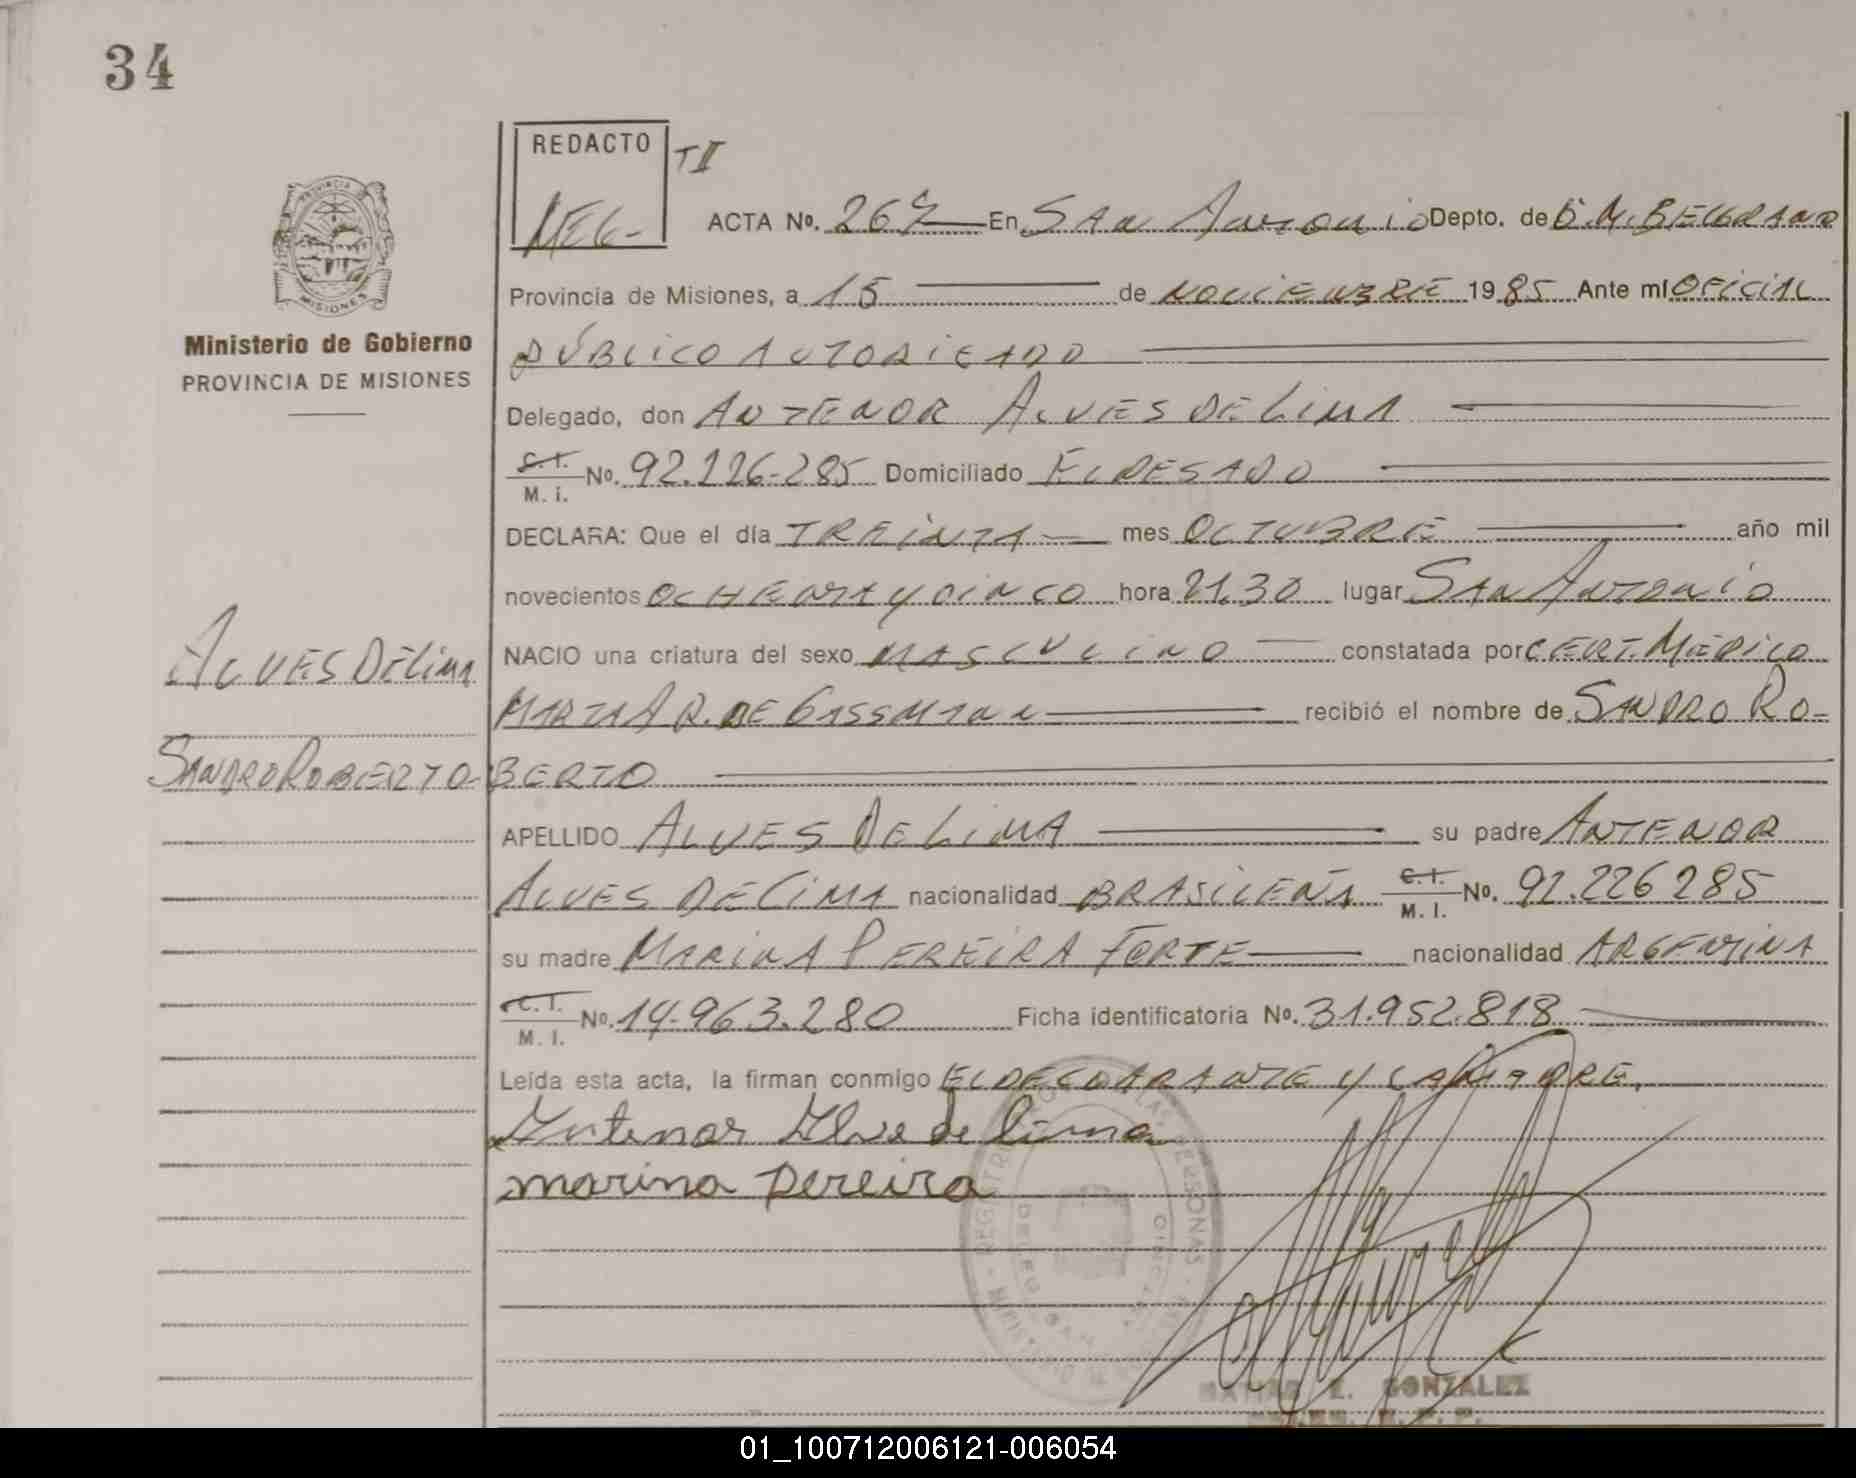 34
REDACTO
TII
MEG-
ACTA No. 267 En SAN ANTONIO Depto. de G.M.BELGRANO
Provincia de Misiones, a 15 de NOVIEMBRE 1985 Ante mi OFICIAL
PÚBLICO AUTORIZADO
PROVINCIA DE
MISIONES
Ministerio de Gobierno
PROVINCIA DE MISIONES
Delegado, don ANTENOR ALVES DE LIMA
C.I. M. i. No. 92.226.285 Domiciliado ELDESADO
DECLARA: Que el día TREINTA mes OCTUBRE año mil
novecientos OCHENTA y CINCO hora 21.30 lugar SAN ANTONIO
NACIO una criatura del sexo MASCULINO constatada por CERT. MÉDICO
MARTA R. DE GASSMANN recibió el nombre de SANDRO RO-
BERTO
ALVES DE LIMA
SANDRO ROBERTO
APELLIDO ALVES DE LIMA su padre ANTENOR
ALVES DE LIMA nacionalidad BRASILEÑA C.I. M. I. No. 92.226285
su madre MARINA PEREIRA FORTE nacionalidad ARGENTINA
C.I. M. I. No. 14.963.280 Ficha identificatoria No. 31.952.818
Leída esta acta, la firman conmigo EL DECLARANTE Y LA MADRE.
Antenor Alve de lima
marina pereira
GONZALEZ
01_100712006121-006054